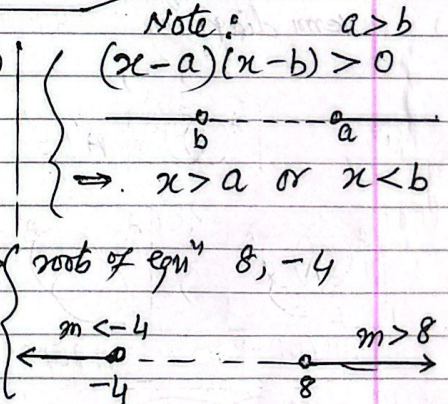 Note: a > b
(x-a)(x-b) > 0
b a
⇒. x > a or x < b
roots of equⁿ 8, -4
m < -4 m > 8
-4 8